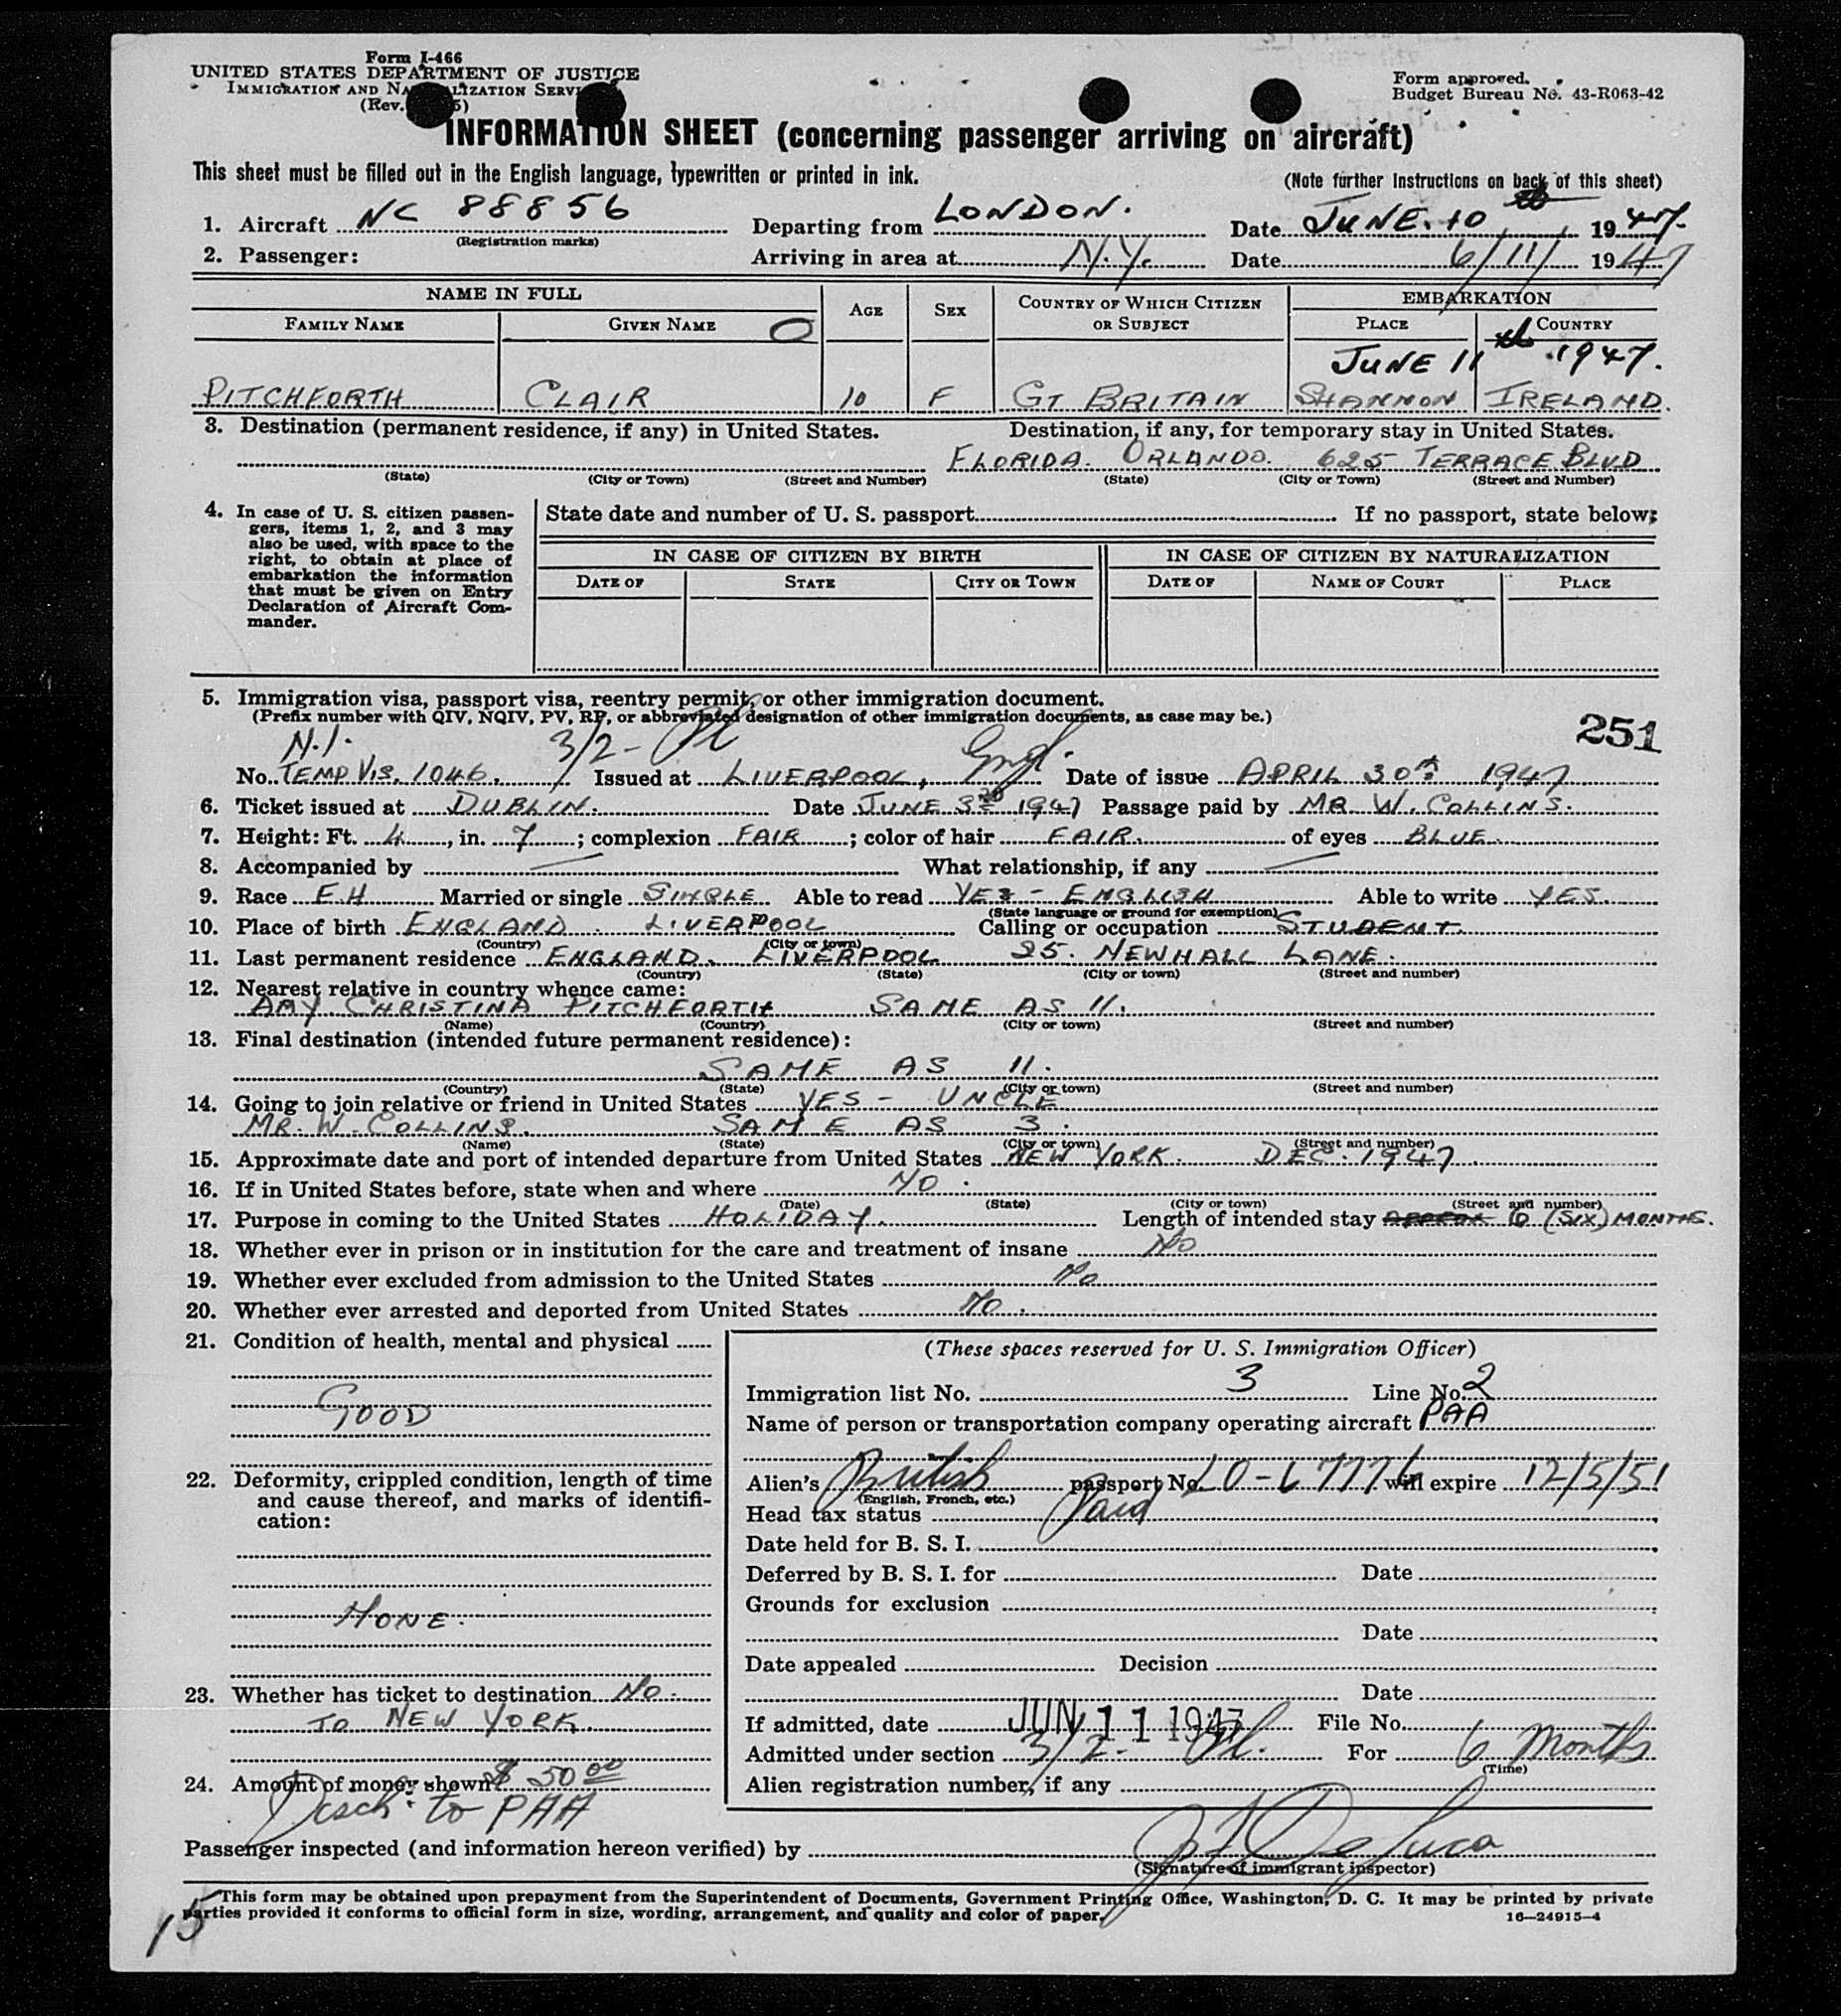 Form I-466
UNITED STATES DEPARTMENT OF JUSTICE
IMMIGRATION AND NATURALIZATION SERVICE
(Rev.
Form approved.
Budget Bureau No. 43-R063-42
INFORMATION SHEET (concerning passenger arriving on aircraft)
This sheet must be filled out in the English language, typewritten or printed in ink.
(Note further instructions on back of this sheet)
1. Aircraft NC 88856 Departing from LONDON. Date JUNE. 10 th 1947.
(Registration marks)
2. Passenger: Arriving in area at N.Y. Date 6/11/ 1947
NAME IN FULL AGE SEX COUNTRY OF WHICH CITIZEN OR SUBJECT EMBARKATION
FAMILY NAME GIVEN NAME O PLACE COUNTRY
JUNE 11 th 1947.
PITCHFORTH CLAIR 10 F GT BRITAIN SHANNON IRELAND.
3. Destination (permanent residence, if any) in United States. Destination, if any, for temporary stay in United States.
FLORIDA. ORLANDO. 625 TERRACE BLVD
(State) (City or Town) (Street and Number) (State) (City or Town) (Street and Number)
4. In case of U. S. citizen passengers, items 1, 2, and 3 may also be used, with space to the right, to obtain at place of embarkation the information that must be given on Entry Declaration of Aircraft Commander.
State date and number of U. S. passport If no passport, state below:
IN CASE OF CITIZEN BY BIRTH IN CASE OF CITIZEN BY NATURALIZATION
DATE OF STATE CITY OR TOWN DATE OF NAME OF COURT PLACE
5. Immigration visa, passport visa, reentry permit, or other immigration document.
(Prefix number with QIV, NQIV, PV, RP, or abbreviated designation of other immigration documents, as case may be.)
251
N.I. 3/2- Pl Engl.
No. TEMP VIS. 1046. Issued at LIVERPOOL, Date of issue APRIL 30th 1947
6. Ticket issued at DUBLIN. Date JUNE 3rd 1947 Passage paid by MR W. COLLINS.
7. Height: Ft. 4, in. 7; complexion FAIR; color of hair FAIR. of eyes BLUE.
8. Accompanied by — What relationship, if any —
9. Race EH Married or single SINGLE Able to read YES - ENGLISH Able to write YES.
(State language or ground for exemption)
10. Place of birth ENGLAND LIVERPOOL Calling or occupation STUDENT
(Country) (City or town)
11. Last permanent residence ENGLAND. LIVERPOOL 25. NEWHALL LANE.
(Country) (State) (City or town) (Street and number)
12. Nearest relative in country whence came:
AMY CHRISTINA PITCHFORTH SAME AS 11.
(Name) (Country) (City or town) (Street and number)
13. Final destination (intended future permanent residence):
SAME AS 11.
(Country) (State) (City or town) (Street and number)
14. Going to join relative or friend in United States YES - UNCLE
MR. W. COLLINS. SAME AS 3.
(Name) (State) (City or town) (Street and number)
15. Approximate date and port of intended departure from United States NEW YORK. DEC. 1947.
16. If in United States before, state when and where NO.
(Date) (State) (City or town) (Street and number)
17. Purpose in coming to the United States HOLIDAY. Length of intended stay APPROX 6 (SIX) MONTHS.
18. Whether ever in prison or in institution for the care and treatment of insane NO
19. Whether ever excluded from admission to the United States NO
20. Whether ever arrested and deported from United States NO.
21. Condition of health, mental and physical
GOOD
22. Deformity, crippled condition, length of time and cause thereof, and marks of identification:
NONE.
23. Whether has ticket to destination NO.
TO NEW YORK.
24. Amount of money shown $ 50 00
Disch. to PAA
(These spaces reserved for U. S. Immigration Officer)
Immigration list No. 3 Line No. 2
Name of person or transportation company operating aircraft PAA
Alien's British passport No. LO-67776 will expire 12/5/51
(English, French, etc.)
Head tax status Paid
Date held for B. S. I.
Deferred by B. S. I. for Date
Grounds for exclusion
Date
Date appealed Decision
Date
If admitted, date JUN 11 1947 File No.
Admitted under section 3/2- Pl. For 6 Months
(Time)
Alien registration number, if any
Passenger inspected (and information hereon verified) by J F DeLuca
(Signature of immigrant inspector)
This form may be obtained upon prepayment from the Superintendent of Documents, Government Printing Office, Washington, D. C. It may be printed by private
parties provided it conforms to official form in size, wording, arrangement, and quality and color of paper.
16—24915-4
15